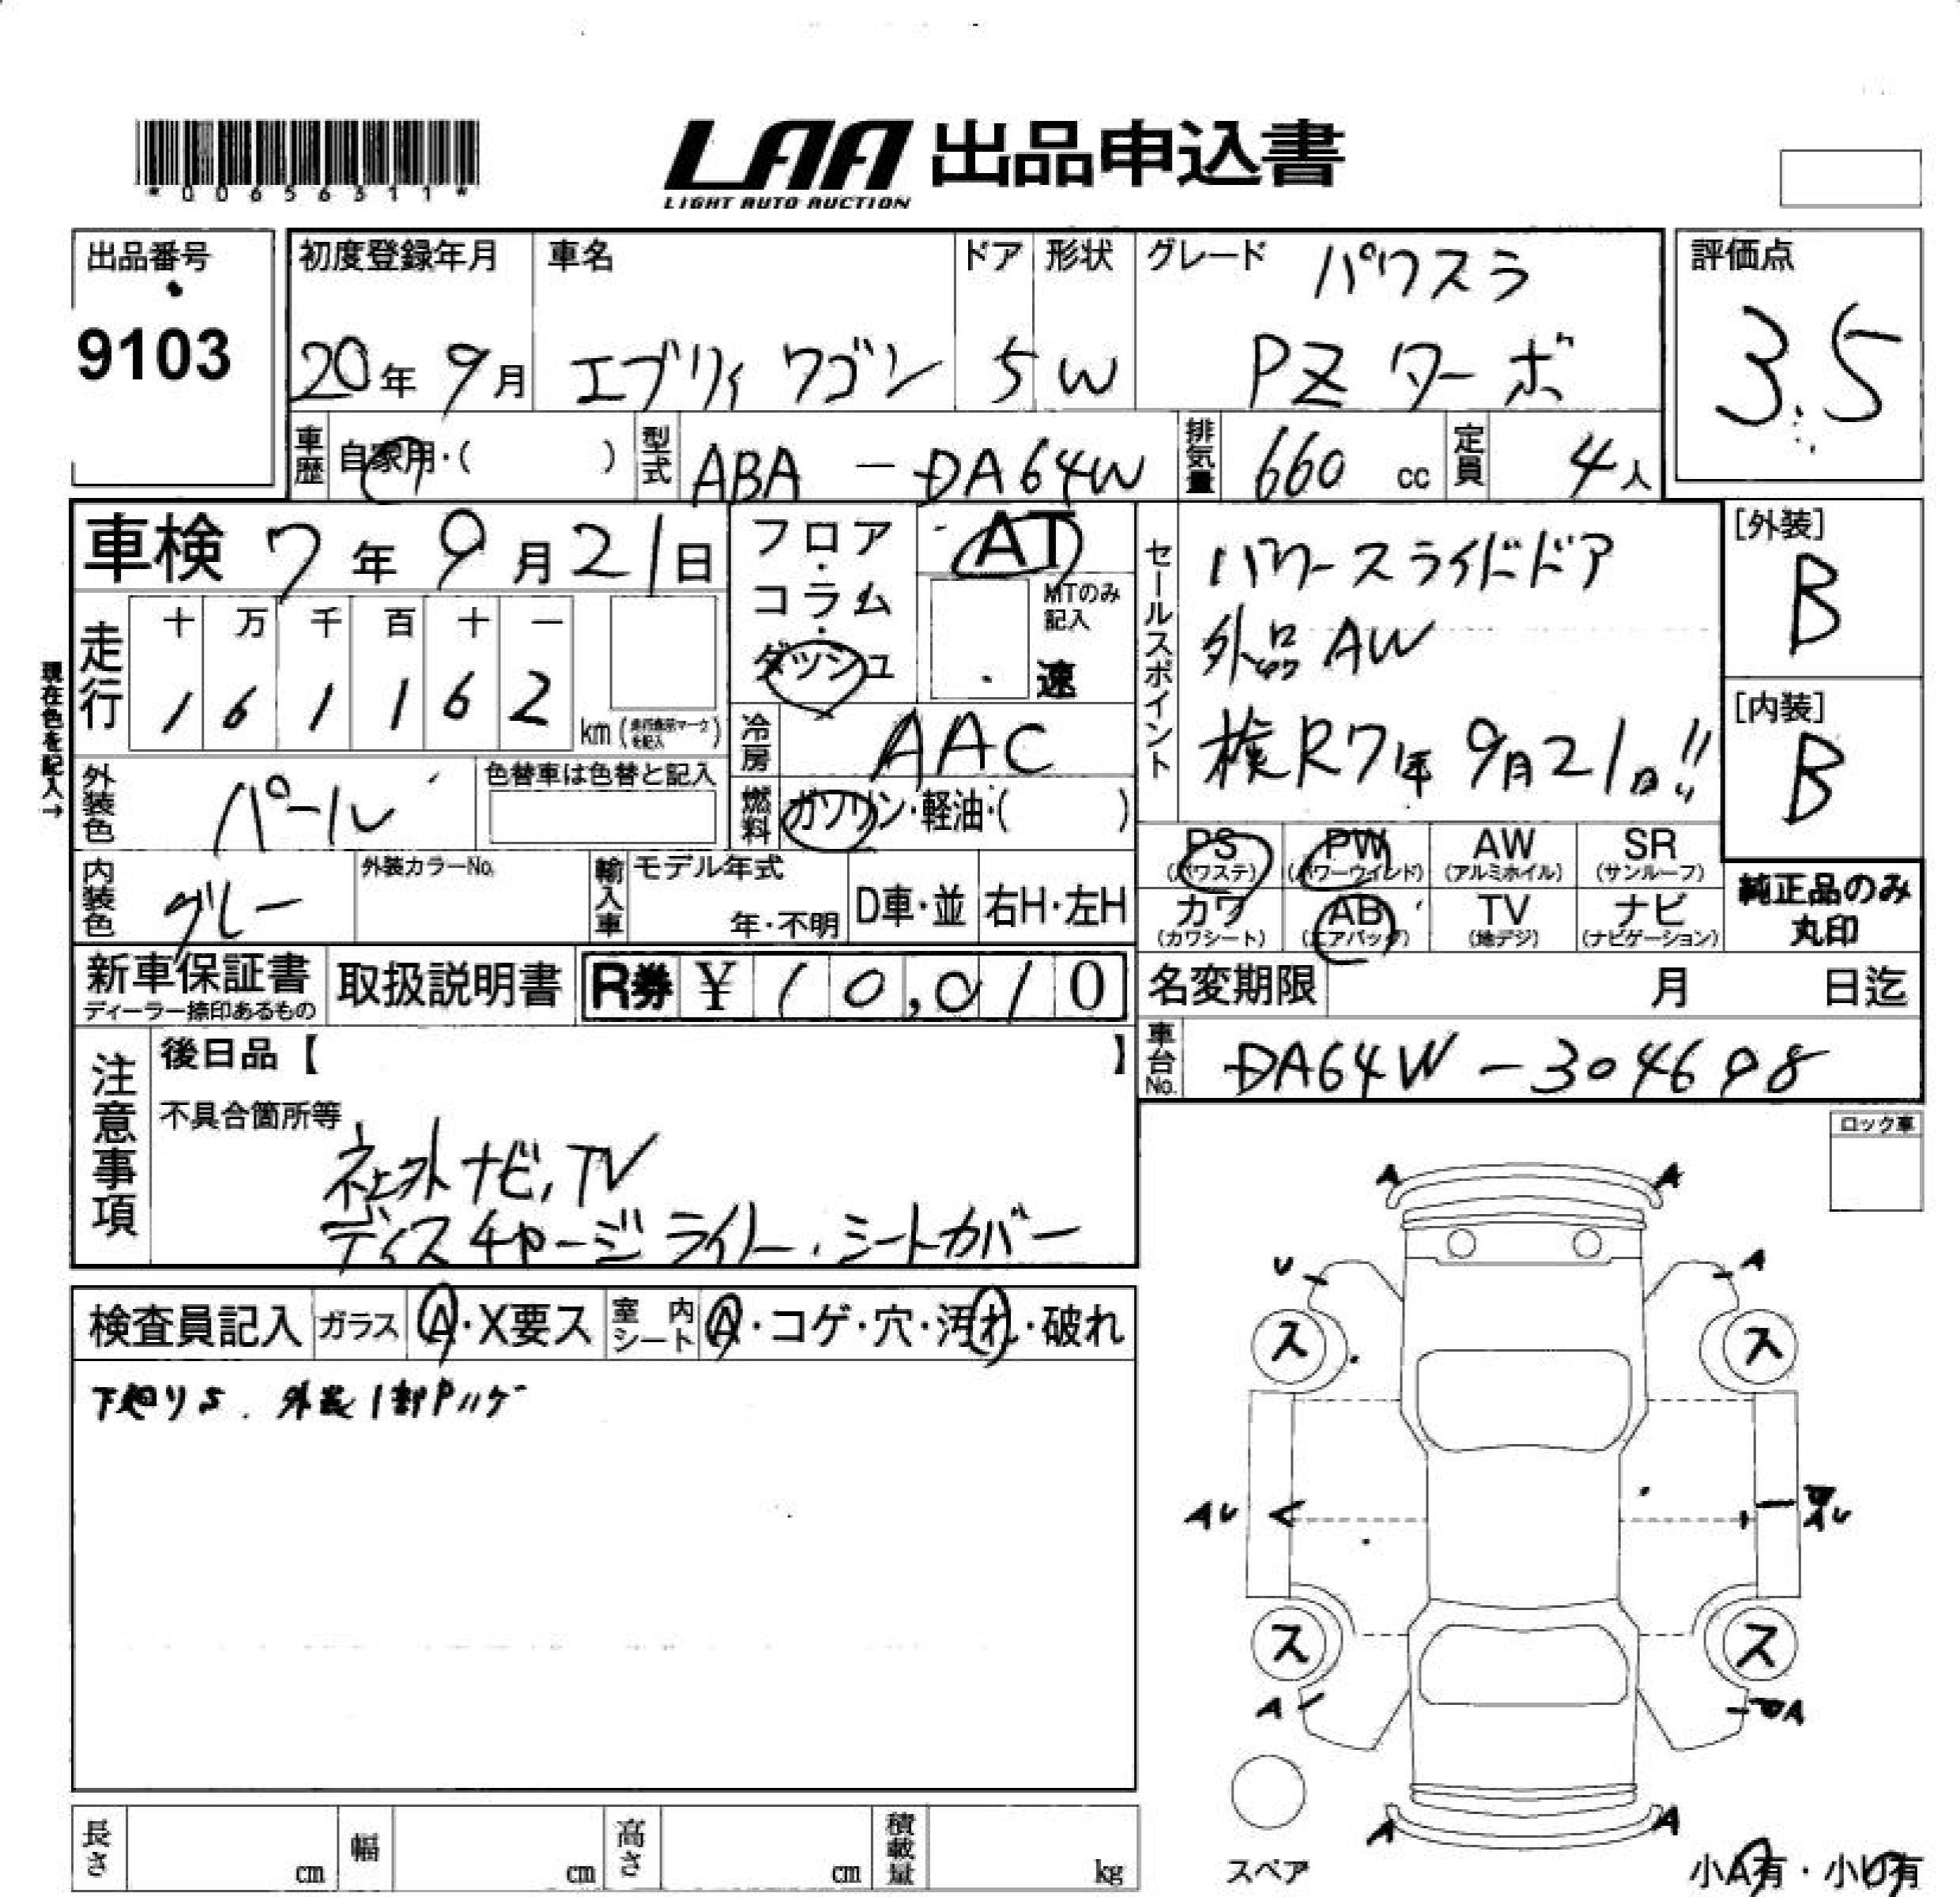 *00656311*
LAA 出品申込書
LIGHT AUTO AUCTION
出品番号
9103
初度登録年月
20年 9月
車名
エブリィ ワゴン
ドア
5
形状
W
グレード
パワスラ
PZ ターボ
評価点
3.5
車歴
自家用・( )
型式
ABA - DA64W
排気量
660 cc
定員
4人
車検 7年 9月 21日
フロア・コラム・ダッシュ
AT
MTのみ記入
速
走行
十 万 千 百 十 一
1 6 1 1 6 2
km
現在色を記入→
冷房
AAC
外装色
パール
色替車は色替と記入
燃料
ガソリン・軽油・( )
内装色
グレー
外装カラーNo.
輸入車
モデル年式
年・不明
D車・並
右H・左H
セールスポイント
パワースライドドア
外品 AW
検R7年 9月21日!!
[外装]
B
[内装]
B
PS
(パワステ)
PW
(パワーウインド)
AW
(アルミホイル)
SR
(サンルーフ)
カワ
(カワシート)
AB
(エアバッグ)
TV
(地デジ)
ナビ
(ナビゲーション)
純正品のみ
丸印
新車保証書
ディーラー捺印あるもの
取扱説明書
R券 ¥ 10,010
名変期限 月 日迄
車台No.
DA64W-304698
注意事項
後日品【 】
不具合箇所等
社外ナビ, TV
ディスチャージライト, シートカバー
ロック車
検査員記入
ガラス
A・X要ス
室内シート
A・コゲ・穴・汚れ・破れ
下廻りS. 外装1部Pハゲ
A A
U A
ス ス
AU AU
ス ス
A A
A A
スペア
長さ cm
幅 cm
高さ cm
積載量 kg
小A有・小U有